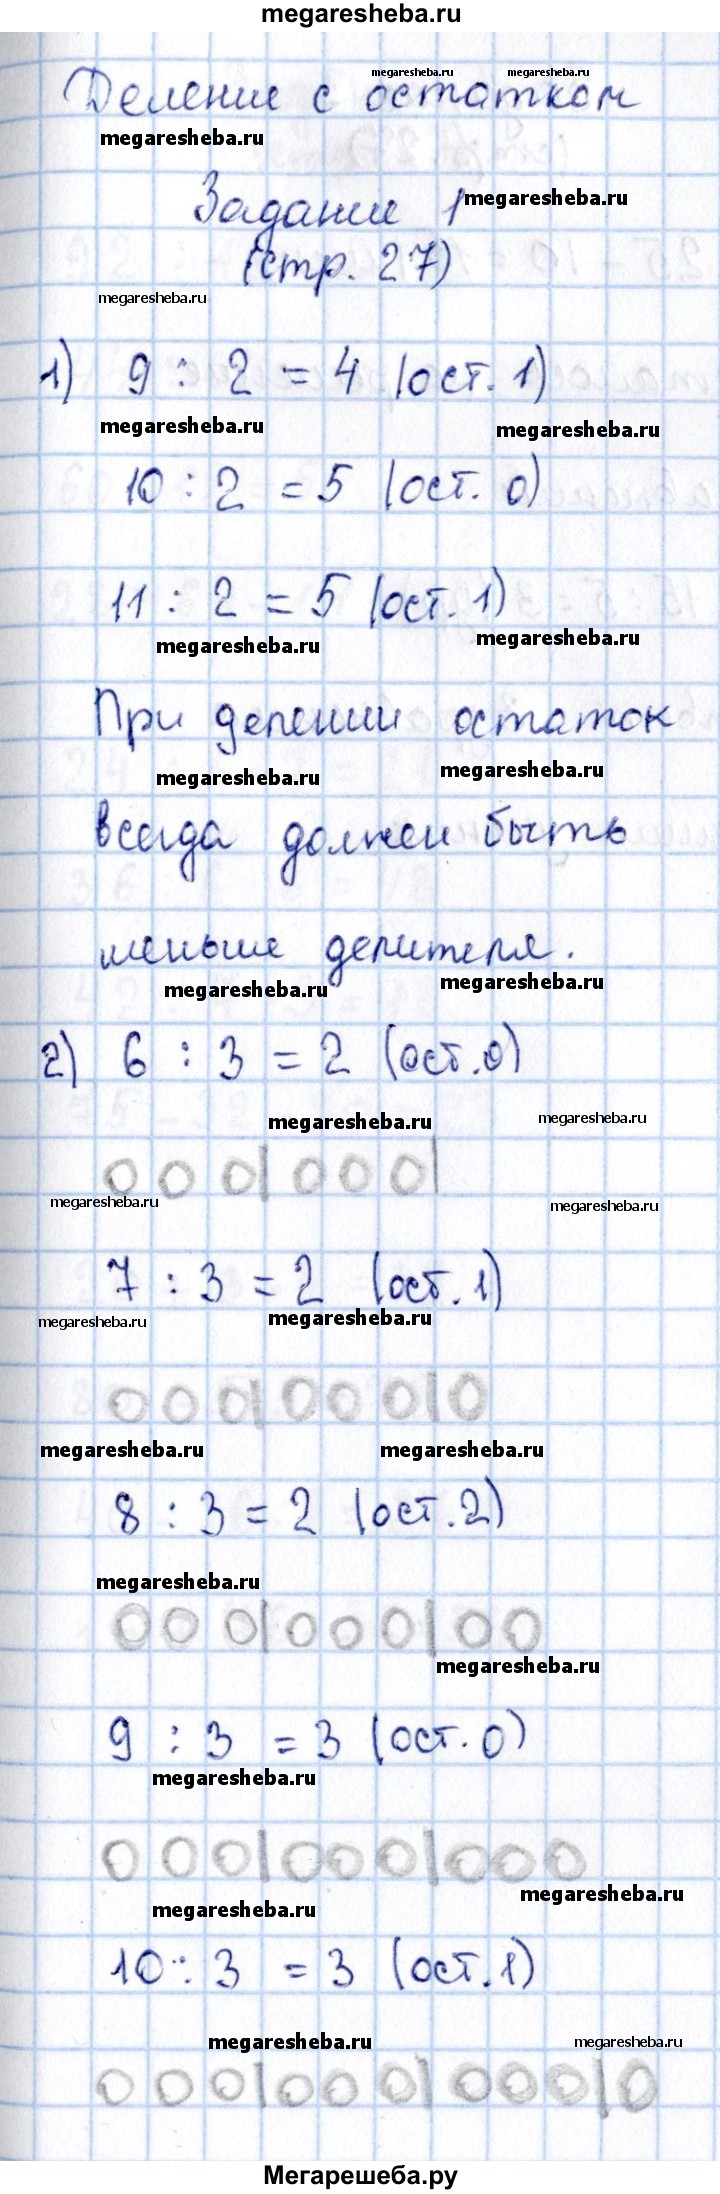 megaresheba.ru
megaresheba.ru megaresheba.ru
Деление с остатком
megaresheba.ru
Задание 1
megaresheba.ru
(стр. 27)
megaresheba.ru
1) 9 : 2 = 4 (ост. 1)
megaresheba.ru megaresheba.ru
10 : 2 = 5 (ост. 0)
11 : 2 = 5 (ост. 1)
megaresheba.ru megaresheba.ru
При делении остаток
megaresheba.ru megaresheba.ru
всегда должен быть
меньше делителя.
megaresheba.ru megaresheba.ru
2) 6 : 3 = 2 (ост. 0)
megaresheba.ru megaresheba.ru
000|000|
megaresheba.ru megaresheba.ru
7 : 3 = 2 (ост. 1)
megaresheba.ru megaresheba.ru
000|000|0
megaresheba.ru megaresheba.ru
8 : 3 = 2 (ост. 2)
megaresheba.ru
000|000|00
megaresheba.ru
9 : 3 = 3 (ост. 0)
megaresheba.ru
000|000|000
megaresheba.ru
megaresheba.ru
10 : 3 = 3 (ост. 1)
megaresheba.ru megaresheba.ru
000|000|000|0
Мегарешеба.ру